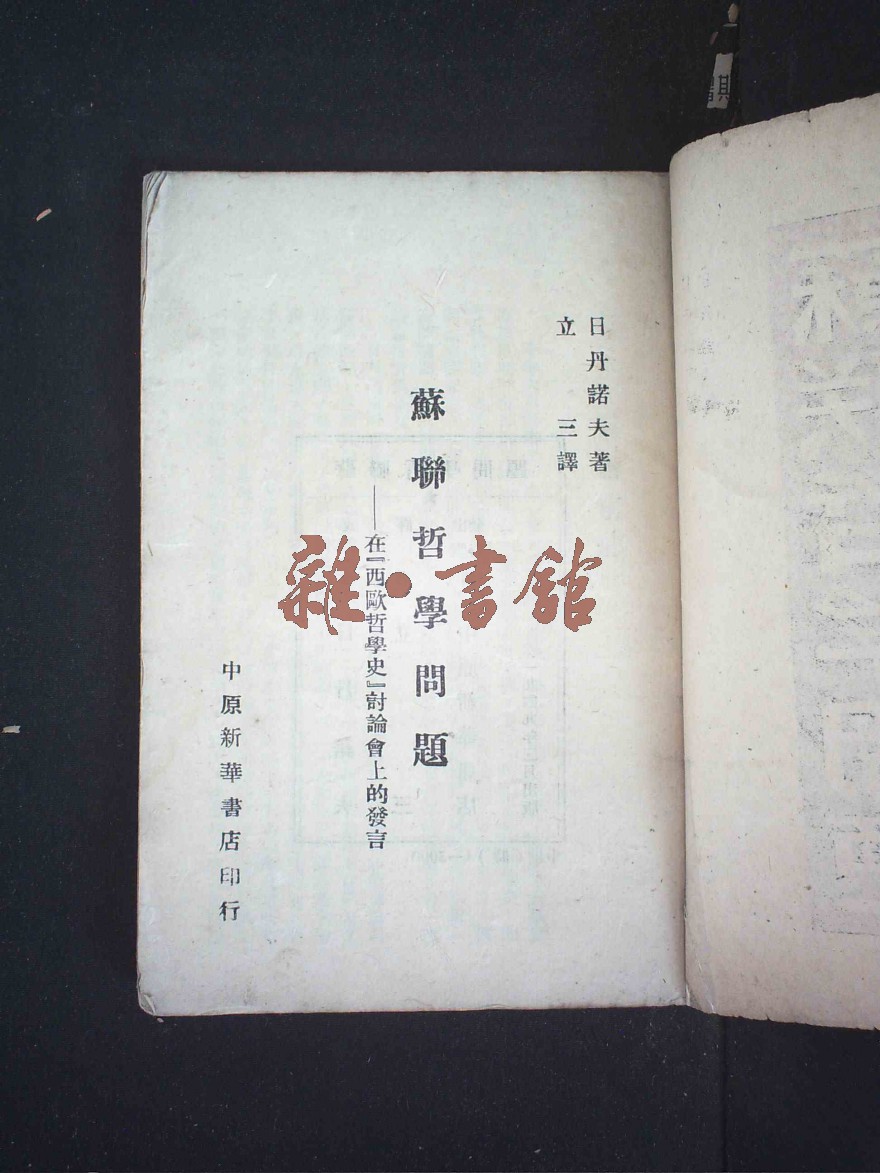 日丹諾夫著
立三譯
蘇聯哲學問題
——在『西歐哲學史』討論會上的發言
中原新華書店印行
雜·書館